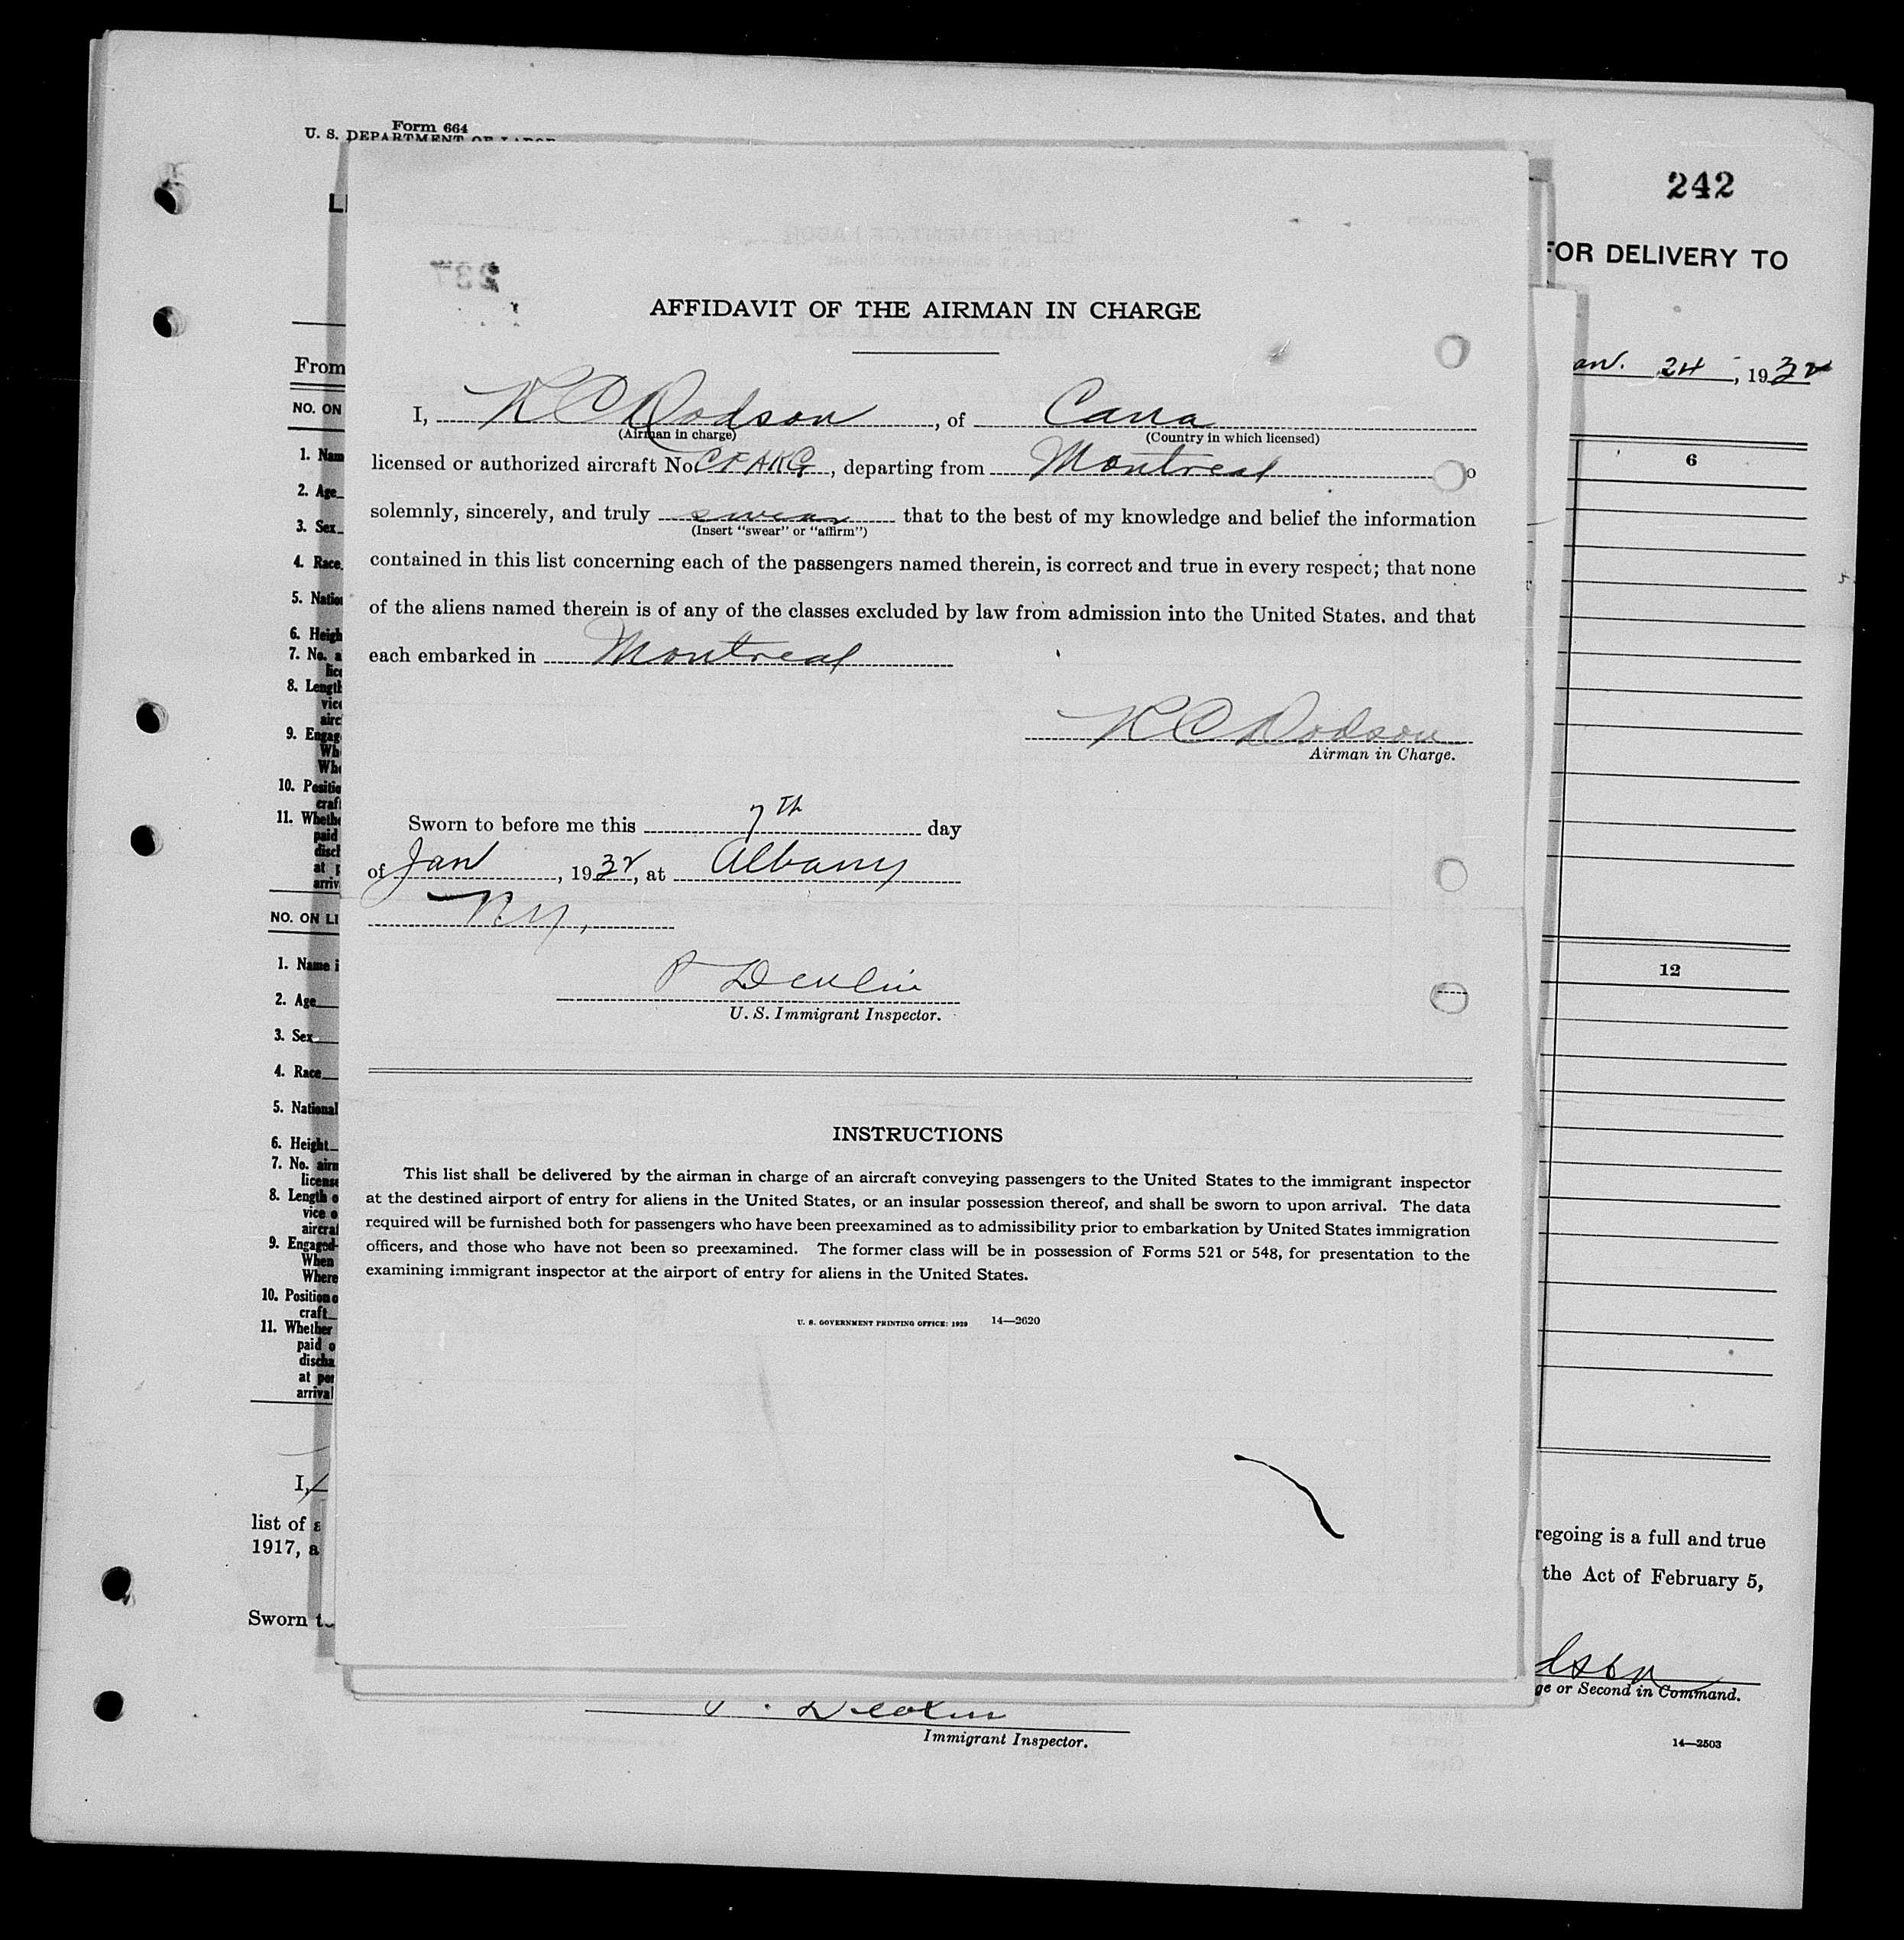 Form 664
U. S. DEPARTMENT OF LABOR
242
FOR DELIVERY TO
From
an. 24, 1932
NO. ON
6
1. Nam
2. Age
3. Sex
4. Race
5. Natio
6. Heigh
7. No. a
lice
8. Length
vice
airc
9. Engag
Wh
Whe
10. Positio
craft
11. Whethe
paid
disch
at p
arriv
NO. ON LI
12
1. Name i
2. Age
3. Sex
4. Race
5. National
6. Height
7. No. airm
license
8. Length o
vice o
aircraf
9. Engaged
When
Where
10. Position o
craft
11. Whether
paid o
discha
at por
arrival
I,
list of a
1917, a
Sworn t
AFFIDAVIT OF THE AIRMAN IN CHARGE
I, K C Dodson, of Cana
(Airman in charge) (Country in which licensed)
licensed or authorized aircraft No CFAKG, departing from Montreal o
solemnly, sincerely, and truly swear that to the best of my knowledge and belief the information
(Insert "swear" or "affirm")
contained in this list concerning each of the passengers named therein, is correct and true in every respect; that none
of the aliens named therein is of any of the classes excluded by law from admission into the United States. and that
each embarked in Montreal
K C Dodson
Airman in Charge.
Sworn to before me this 7th day
of Jan, 1932, at Albany
N.Y,
P Devlin
U. S. Immigrant Inspector.
INSTRUCTIONS
This list shall be delivered by the airman in charge of an aircraft conveying passengers to the United States to the immigrant inspector
at the destined airport of entry for aliens in the United States, or an insular possession thereof, and shall be sworn to upon arrival. The data
required will be furnished both for passengers who have been preexamined as to admissibility prior to embarkation by United States immigration
officers, and those who have not been so preexamined. The former class will be in possession of Forms 521 or 548, for presentation to the
examining immigrant inspector at the airport of entry for aliens in the United States.
U. S. GOVERNMENT PRINTING OFFICE: 1929 14—2620
regoing is a full and true
the Act of February 5,
ge or Second in Command.
P. Devlin
Immigrant Inspector.
14—2503